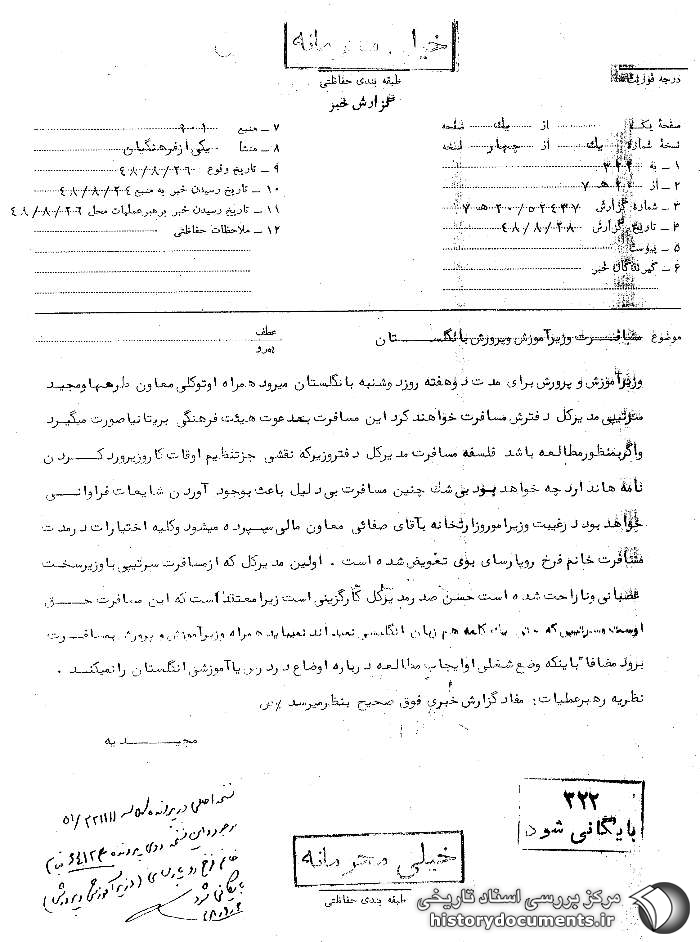 خیلی محرمانه
طبقه بندی حفاظتی
درجه فوریت
گزارش خبر
صفحهٔ یک از یک صفحه
نسخهٔ شماره یك از چهار نسخه
۱ ـ به ۳۲۲
۲ ـ از ۲۰ هـ ۷
۳ ـ شمارهٔ گزارش ۲۰/۵۲۴۳۷ هـ ۷
۴ ـ تاریخ گزارش ۴۸/۸/۲۸
۵ ـ پیوست
۶ ـ گیرندگان خبر
۷ ـ منبع ۹۰۱
۸ ـ منشأ یکی از فرهنگیان
۹ ـ تاریخ وقوع ۴۸/۸/۲۶
۱۰ ـ تاریخ رسیدن خبر به منبع ۴۸/۸/۲۴
۱۱ ـ تاریخ رسیدن خبر برهبر عملیات محل ۴۸/۸/۲۶
۱۲ ـ ملاحظات حفاظتی
موضوع مسافرت وزیر آموزش و پرورش بانگلستان
عطف
پیرو
وزیر آموزش و پرورش برای مدت دو هفته روز دوشنبه بانگلستان میرود همراه او توکلی معاون طرحها و مجید
سرتیپی مدیر کل دفترش مسافرت خواهند کرد این مسافرت بدعوت هیئت فرهنگی بریتانیا صورت میگیرد
و اگر بمنظور مطالعه باشد فلسفه مسافرت مدیر کل دفتر وزیر که نقشی جز تنظیم اوقات کار وزیر و رد کردن
نامه ها ندارد چه خواهد بود بی شك چنین مسافرت بی دلیل باعث بوجود آوردن شایعات فراوانی
خواهد بود در غیبت وزیر امور وزارتخانه بآقای صفائی معاون مالی سپرده میشود و کلیه اختیارات در مدت
مسافرت خانم فرخ رو پارسای بوی تفویض شده است . اولین مدیر کل که از مسافرت سرتیپی با وزیر سخت
عصبانی و ناراحت شده است حسن صدر مدیر کل کارگزینی است زیرا معتقد است که این مسافرت حق
اوست و سرتیپی که حتی یك کلمه هم زبان انگلیسی نمیداند نمیباید همراه وزیر آموزش و پرورش بمسافرت
برود مضافا باینکه وضع شغلی او ایجاب مطالعه درباره اوضاع درسی یا آموزشی انگلستان را نمیکند .
نظریه رهبر عملیات : مفاد گزارش خبری فوق صحیح بنظر میرسد
مجیدیه
۳۲۲
بایگانی شود
نسخه اصلی در پرونده
این نسخه روی پرونده ۶۴۱۲۴
خانم فرخ رو پارسای (وزیر آموزش و پرورش)
بایگانی شود
خیلی محرمانه
طبقه بندی حفاظتی
مرکز بررسی اسناد تاریخی
historydocuments.ir